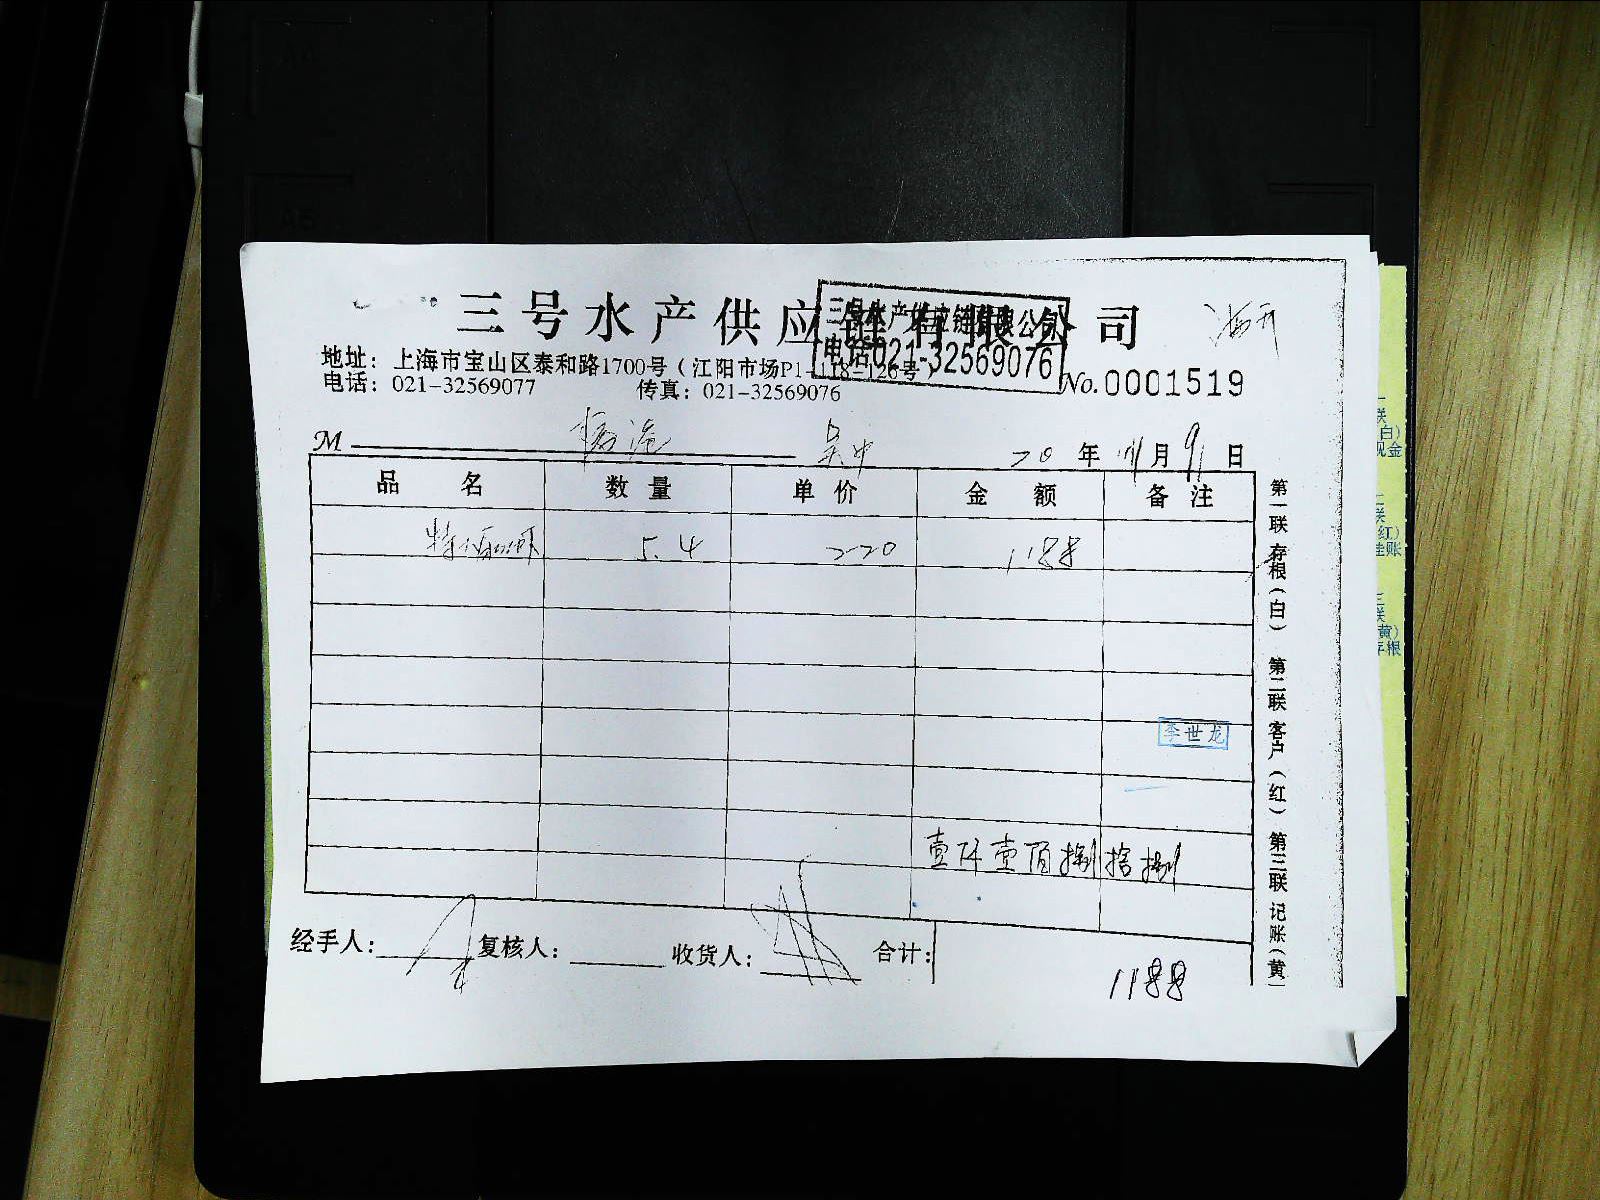 三号水产供应链有限公司
三号水产供应链有限公司
电话021-32569076
地址：上海市宝山区泰和路1700号（江阳市场P1-118-126号）
电话：021-32569077 传真：021-32569076
No.0001519
M 吴中 20年11月9日
品名 数量 单价 金额 备注
5.4 220 1188
李世龙
壹仟壹佰捌拾捌
经手人： 复核人： 收货人： 合计：
1188
第一联存根（白） 第二联客户（红） 第三联记账（黄